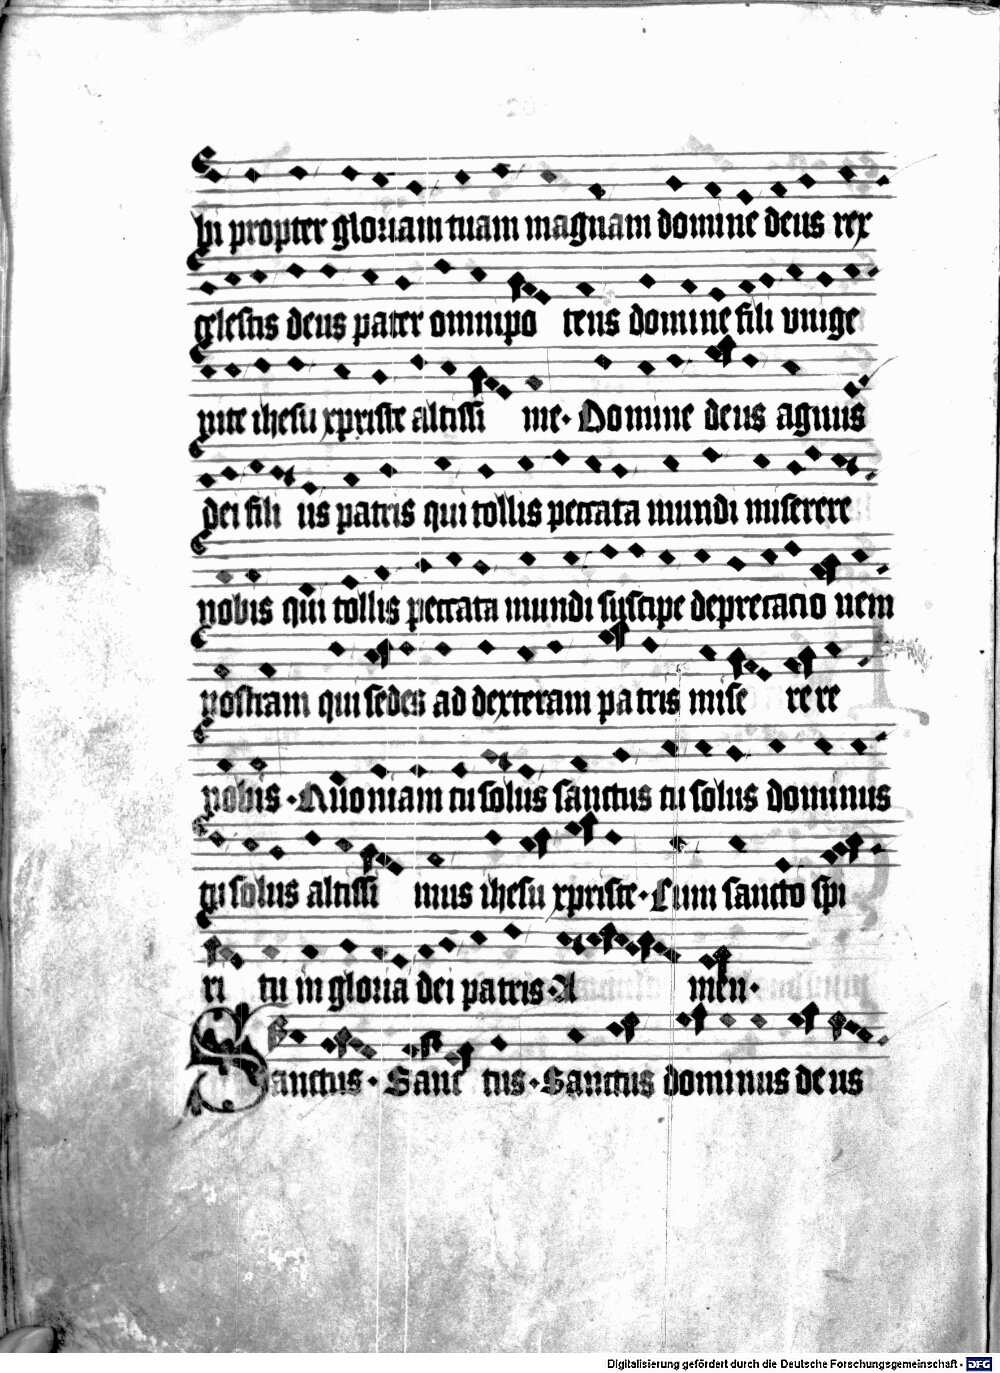 bi propter gloriam tuam magnam domine deus rex
celestis deus pater omnipo tens domine fili vnige
nite ihesu xpriste altissi me · Domine deus agnus
dei fili us patris qui tollis peccata mundi miserere
nobis qui tollis peccata mundi suscipe deprecacio nem
nostram qui sedes ad dexteram patris mise re re
nobis · Quoniam tu solus sanctus tu solus dominus
tu solus altissi mus ihesu xpriste · Cum sancto spi
ri tu in gloria dei patris · A men ·
Sanctus · Sanc tus · Sanctus dominus de us
Digitalisierung gefördert durch die Deutsche Forschungsgemeinschaft - DFG